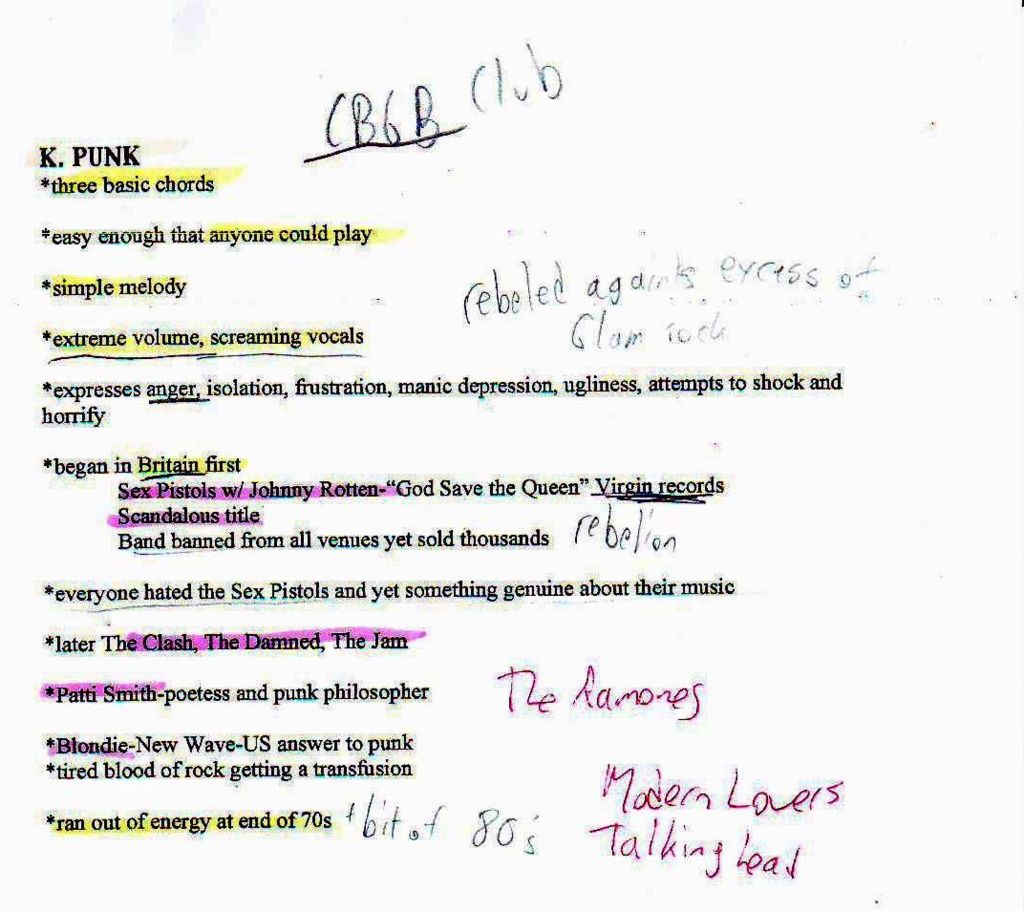 CBGB Club
K. PUNK
*three basic chords
*easy enough that anyone could play
*simple melody
rebeled againts excess of
Glam rock
*extreme volume, screaming vocals
*expresses anger, isolation, frustration, manic depression, ugliness, attempts to shock and
horrify
*began in Britain first
Sex Pistols w/ Johnny Rotten-“God Save the Queen” Virgin records
Scandalous title
Band banned from all venues yet sold thousands rebelion
*everyone hated the Sex Pistols and yet something genuine about their music
*later The Clash, The Damned, The Jam
*Patti Smith-poetess and punk philosopher
The Ramones
*Blondie-New Wave-US answer to punk
*tired blood of rock getting a transfusion
Modern Lovers
*ran out of energy at end of 70s + bit of 80's
Talking Head